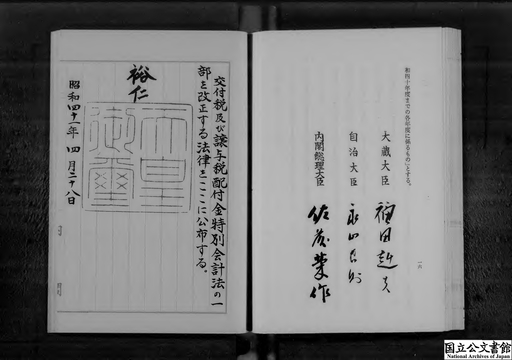 交付税及び譲与税配付金特別会計法の一
部を改正する法律をここに公布する。
裕仁
天皇
御璽
昭和四十一年四月二十八日
和四十年度までの各年度に係るものいとする。
大蔵大臣 福田赳夫
自治大臣 永山忠則
内閣総理大臣 佐藤榮作
国立公文書館
National Archives of Japan